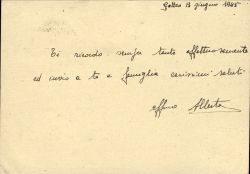 13 giugno 1945
Ti ricordo sempre tanto affettuosamente
ed invio a te e famiglia carissimi saluti
Alberto